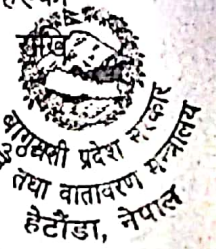 बागमती प्रदेश सरकार
तथा वातावरण मन्त्रालय
हेटौंडा, नेपाल